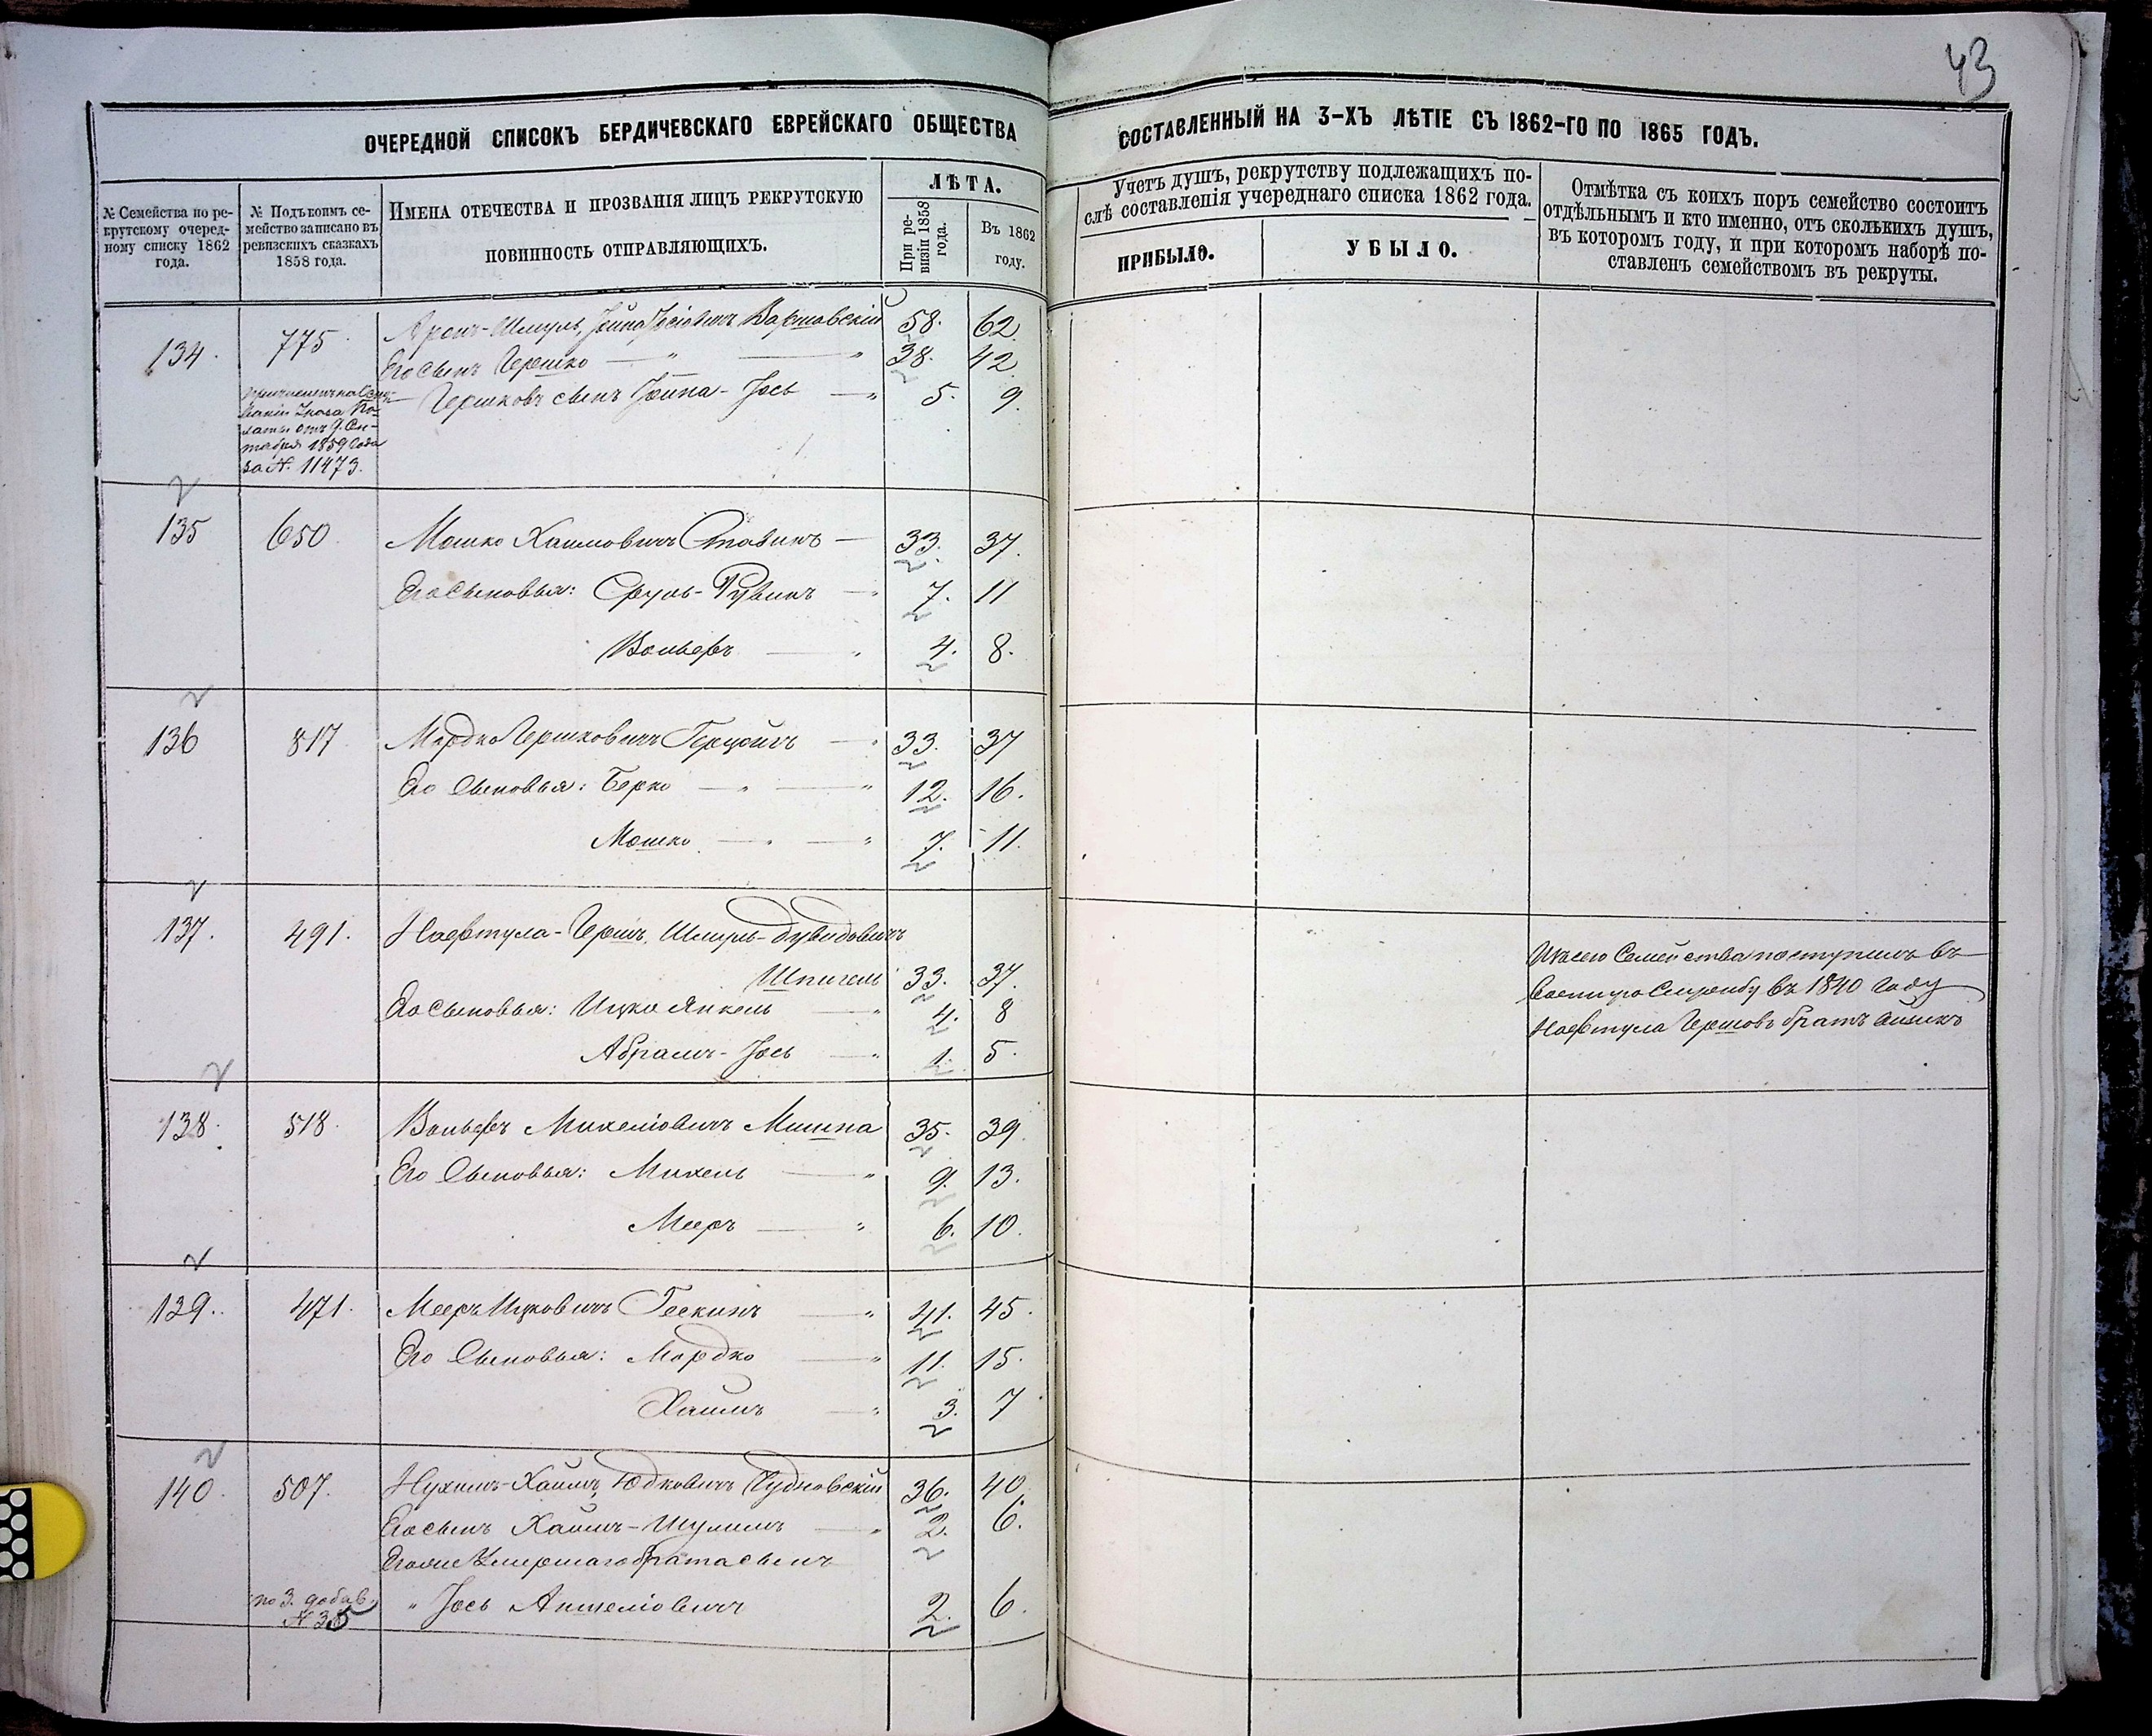 43
ОЧЕРЕДНОЙ СПИСОКЪ БЕРДИЧЕВСКАГО ЕВРЕЙСКАГО ОБЩЕСТВА
СОСТАВЛЕННЫЙ НА 3-ХЪ ЛѢТІЕ СЪ 1862-ГО ПО 1865 ГОДЪ.
№ Семейства по ре-
крутскому очеред-
ному списку 1862
года.
№ Подъ коимъ се-
мейство записано въ
ревизскихъ сказкахъ
1858 года.
ИМЕНА ОТЕЧЕСТВА И ПРОЗВАНІЯ ЛИЦЪ РЕКРУТСКУЮ
ПОВИННОСТЬ ОТПРАВЛЯЮЩИХЪ.
ЛѢТА.
При ре-
визіи 1858
года.
Въ 1862
году.
Учетъ душъ, рекрутству подлежащихъ по-
слѣ составленія учереднаго списка 1862 года.
ПРИБЫЛО.
УБЫЛО.
Отмѣтка съ коихъ поръ семейство состоитъ
отдѣльнымъ и кто именно, отъ сколькихъ душъ,
въ которомъ году, и при которомъ наборѣ по-
ставленъ семействомъ въ рекруты.
134. 775. Аронъ-Шмуль, Іойна Іосіовичъ Варшавскій 58. 62
Его сынъ Гершко — " — " 38. 42
Гершковъ сынъ Іойна-Іось — " 5. 9.
Казен. По-
латы отъ 9. Сен-
тября 1859 года
за №. 11473.
135 650. Мошко Хаимовичъ Ставинъ — 33. 37.
Его сыновья: Сруль-Рувинъ — " 7. 11
Вольфъ — " 4. 8.
136 817 Мордко Гершковичъ — " 33. 37
Его сыновья: Берко — " — " 12. 16.
Мошко — " — " 7. 11.
137. 491. Нафтула-Гершъ, Шмуль-Дувидовичъ
Шпигель 33. 37.
Его сыновья: Ицко Янкель — " 4. 8
Абрамъ-Іось — " 1. 5.
Изъ сего Семейства поступилъ въ
военную службу въ 1840 году
Нафтула Гершовъ братъ Айзикъ
138. 518. Вольфъ Михеліовичъ Мишна 35. 39.
Его сыновья: Михель — " 9. 13.
Мееръ — " 6. 10.
139.. 471. Мееръ Ицковичъ Гескинъ — " 41. 45.
Его сыновья: Мордко — " 11. 15.
Хаимъ — " 3. 7
140. 507. Нухимъ-Хаимъ, Юдковичъ Чудновскій 36. 40.
Его сынъ Хаимъ-Шулимъ — " 2. 6.
Его же умершаго брата сынъ
по 3. добав.
№ 35
" Іось Аншеліовичъ 2. 6.